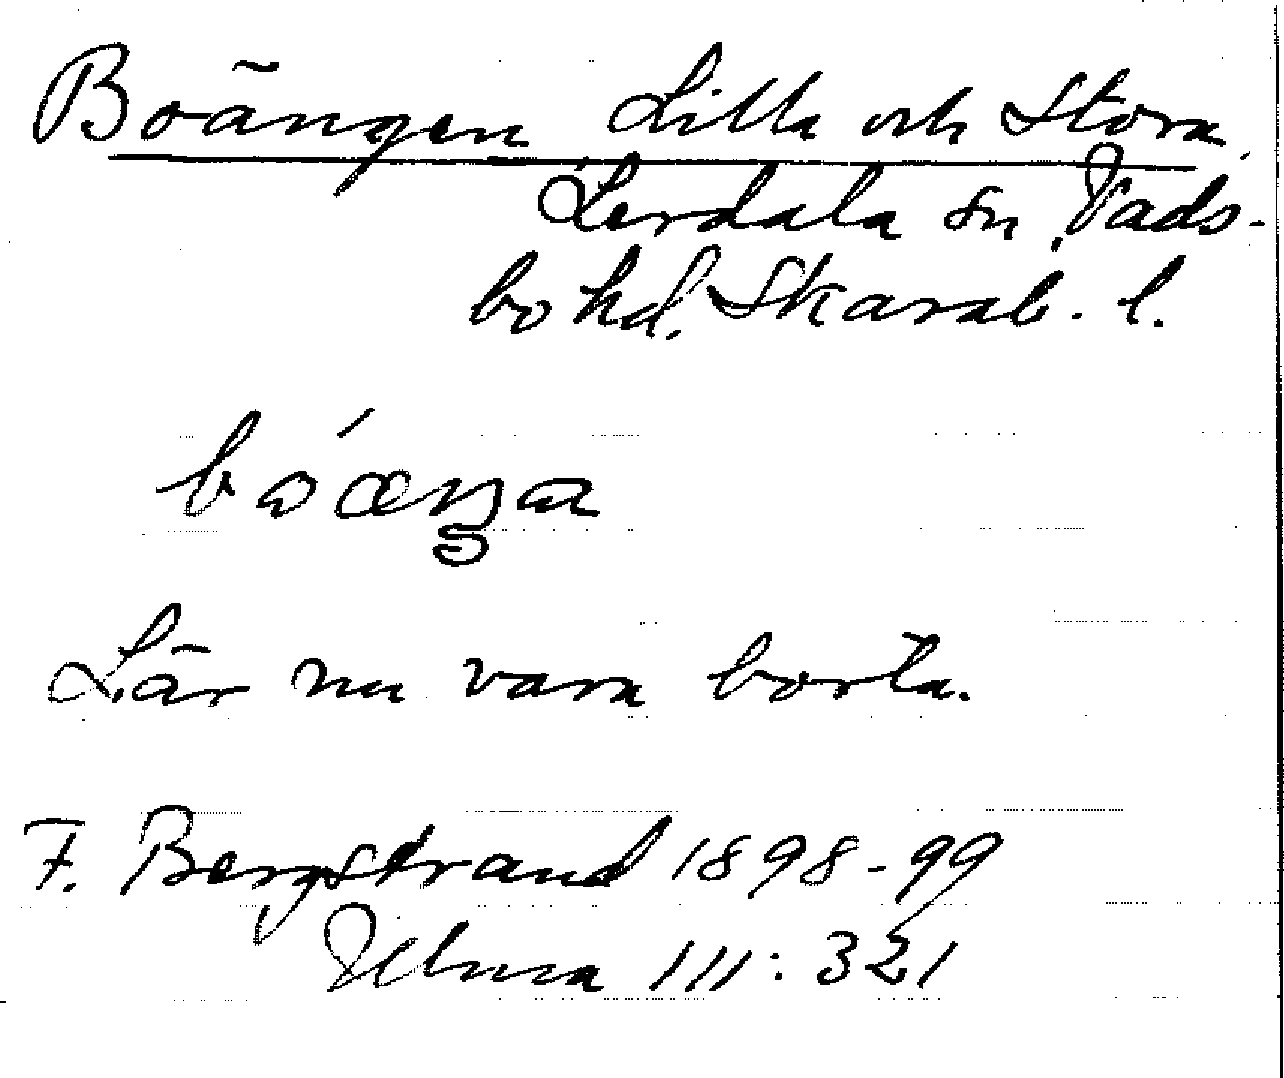 Boängen Lilla och Stora
Lerdala sn, Vads-
bo hd. Skarab. l.
Lär nu vara borta.
F. Bergstrand 1898-99
Ulma 111: 321